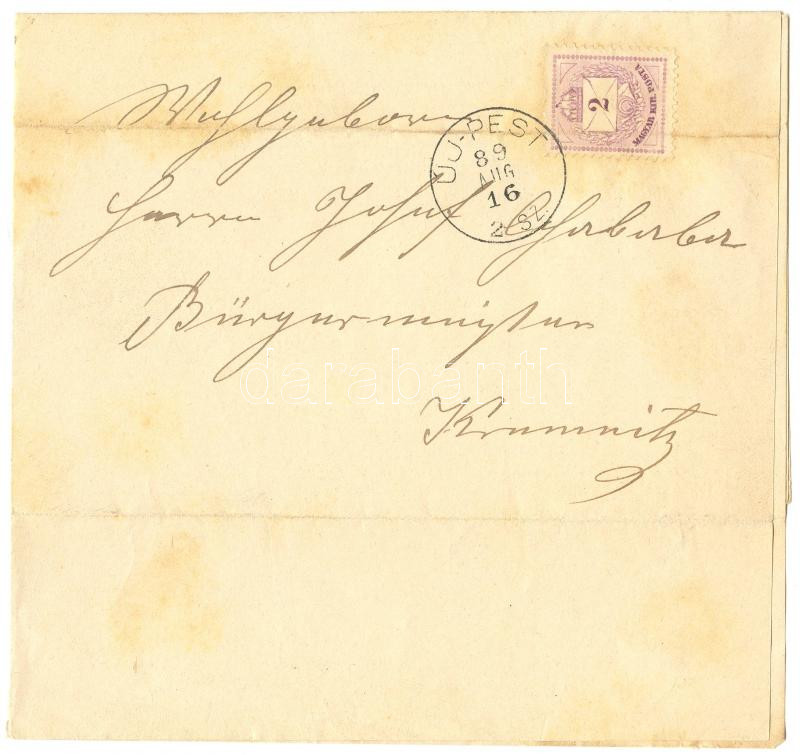 Wohlgeboren
Herrn Josef Chabada
Bürgermeister
Kremnitz
UJ-PEST
89
AUG
16
2 SZ.
2
MAGYAR KIR. POSTA
darabanth